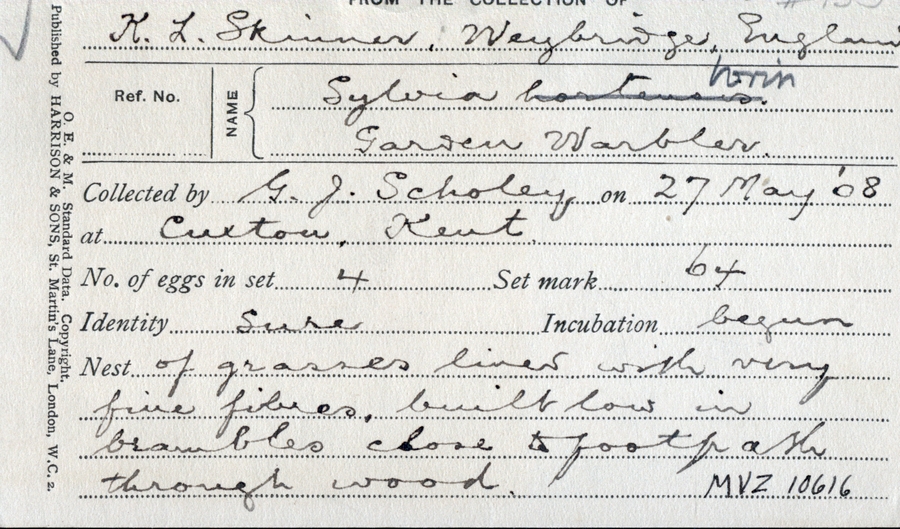 FROM THE COLLECTION OF
K. L. Skinner, Weybridge, England
Ref. No.
NAME
Sylvia hortensis. borin
Garden Warbler.
Collected by G. J. Scholey, on 27 May '08
at Cuxton, Kent.
No. of eggs in set 4 Set mark 64
Identity Sure Incubation begun
Nest of grasses lined with very
fine fibres, built low in
brambles close to footpath
through wood.
MVZ 10616
O. E. & M. Standard Data. Copyright.
Published by HARRISON & SONS, St. Martin's Lane, London, W.C. 2.